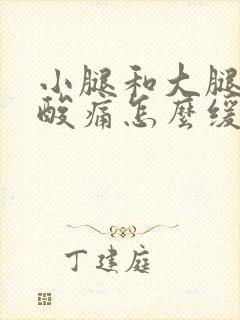 小腿和大腿
酸痛怎麼缓
丁建庭